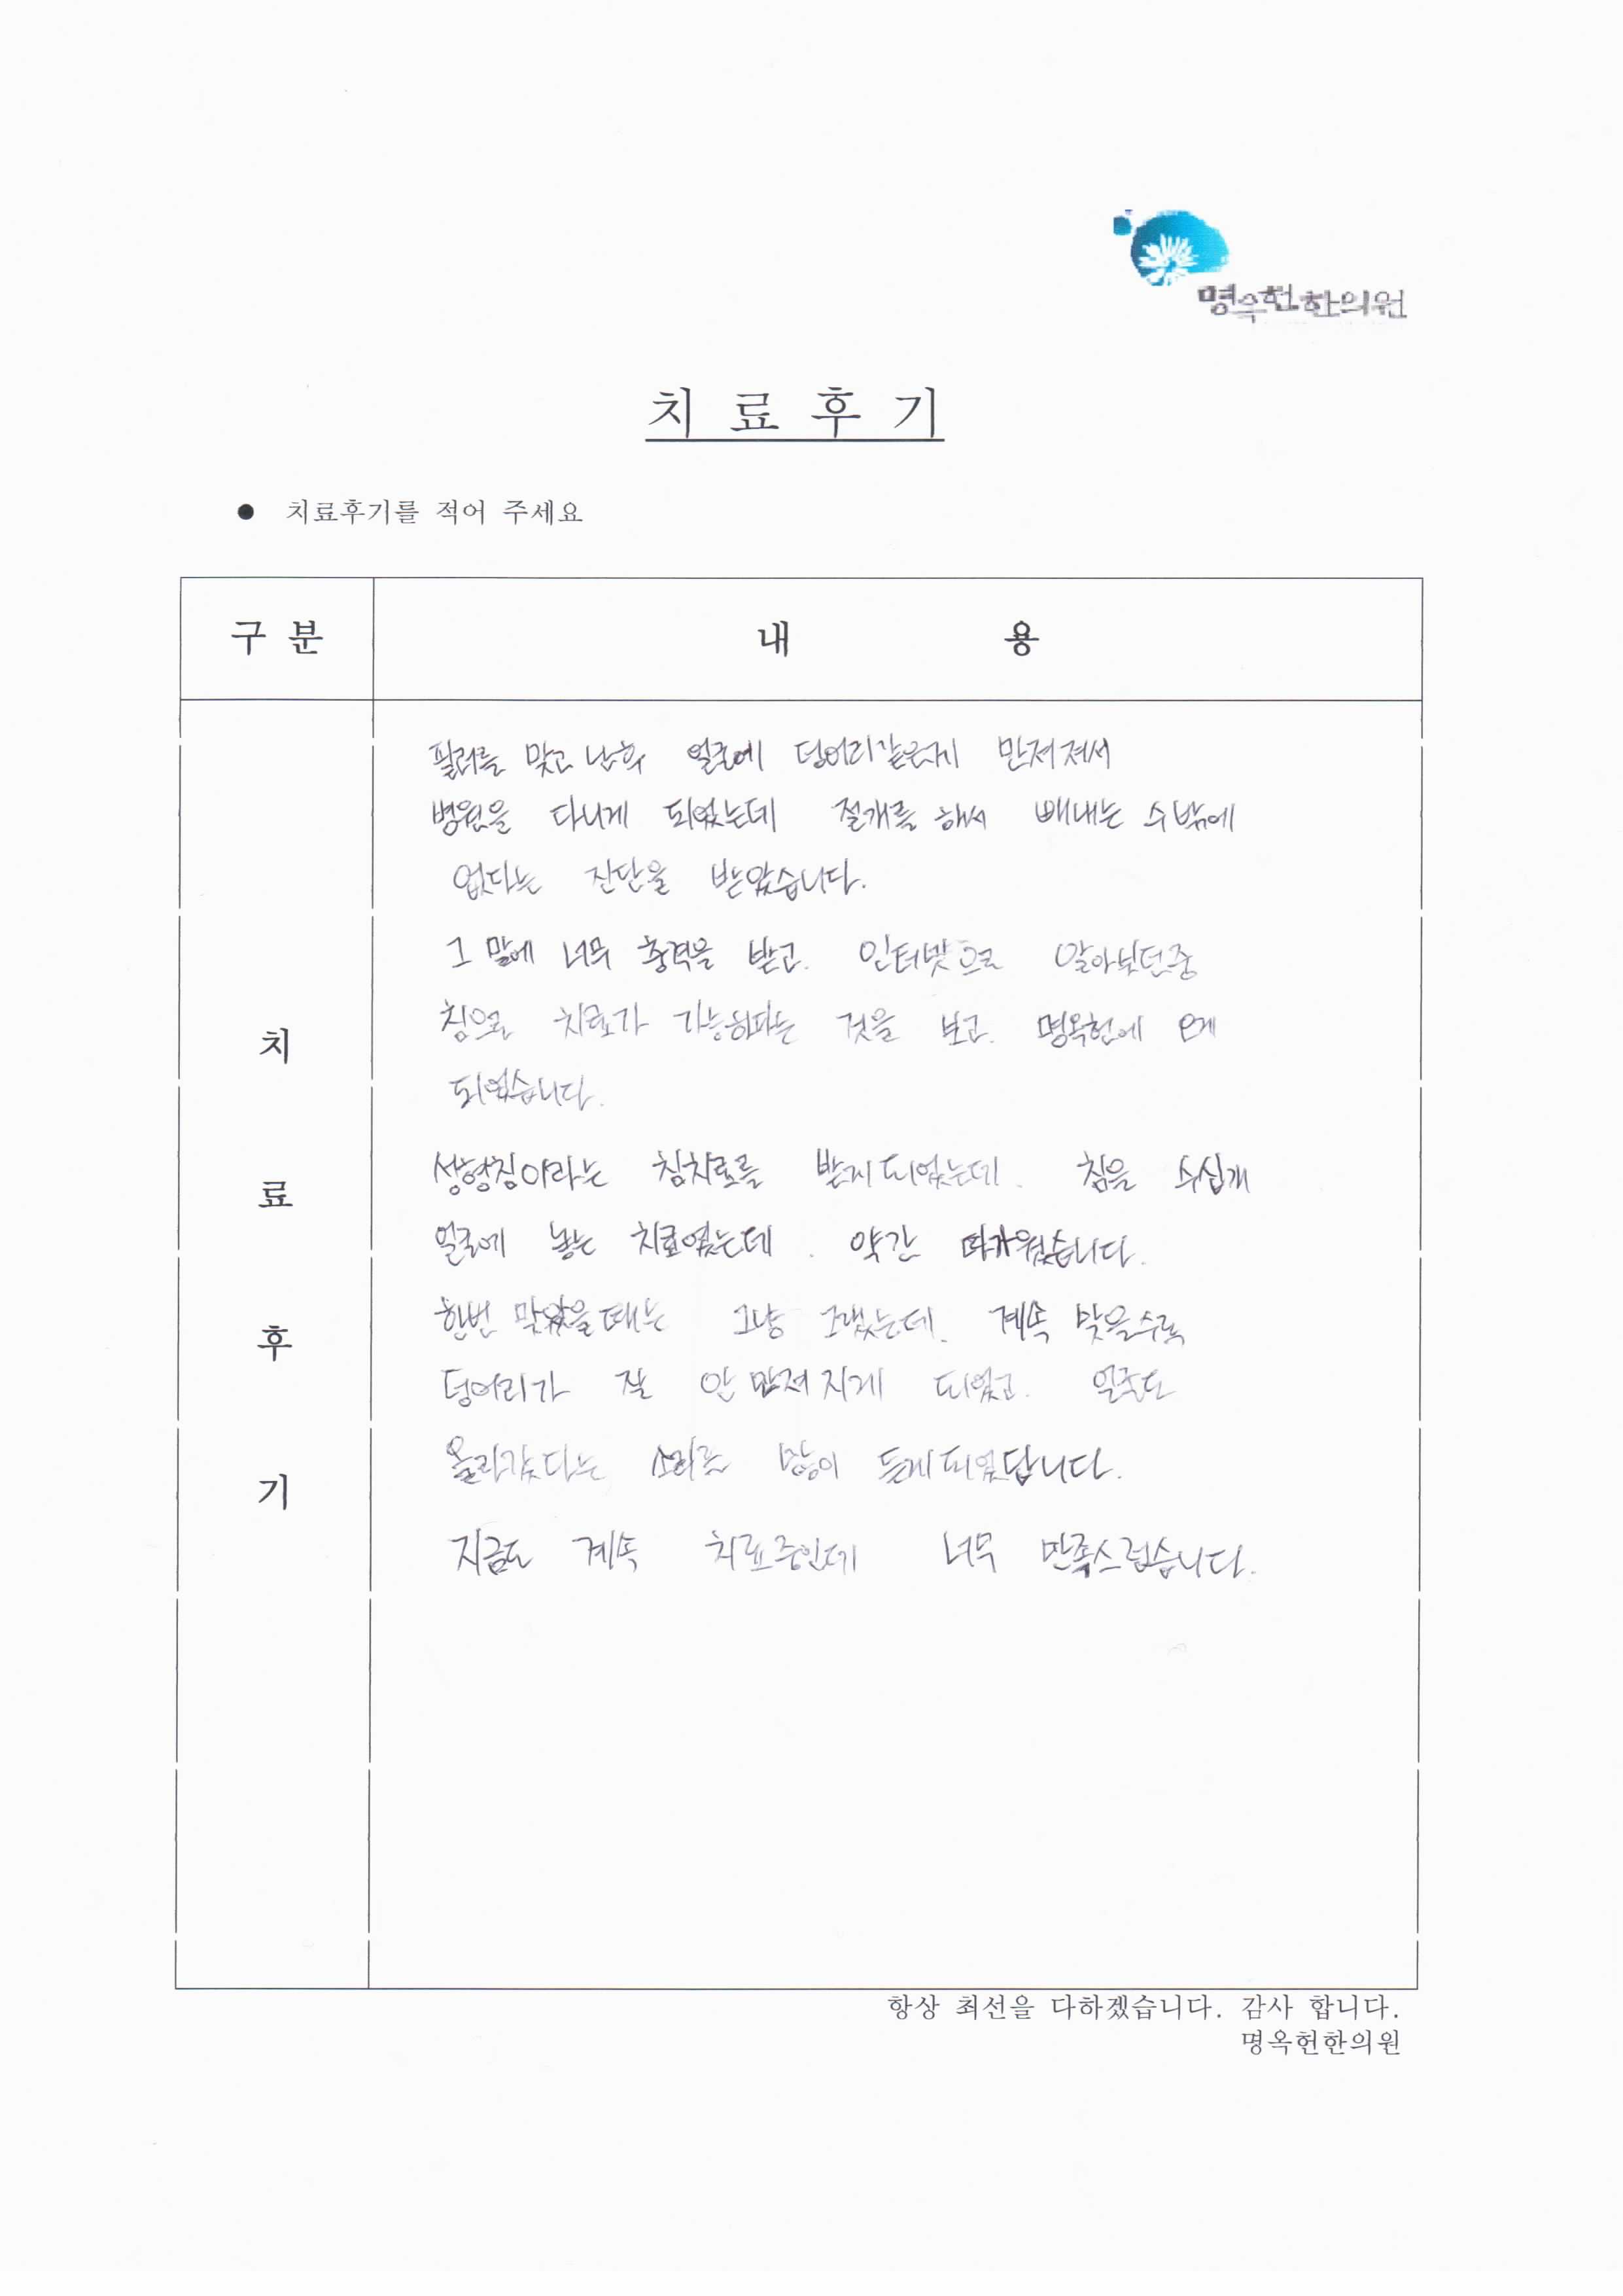 명옥헌한의원
치 료 후 기
● 치료후기를 적어 주세요
구 분 내 용
치 료 후 기
필러를 맞고 난후 얼굴에 덩어리같은게 만져져서
병원을 다니게 되었는데 절개를 해서 빼내는 수밖에
없다는 진단을 받았습니다.
그 말에 너무 충격을 받고. 인터넷으로 알아보던중
침으로 치료가 가능하다는 것을 보고. 명옥헌에 오게
되었습니다.
성형침이라는 침치료를 받게되었는데. 침을 수십개
얼굴에 놓는 치료였는데. 약간 따가웠습니다.
한번 맞았을때는 그냥 그랬는데. 계속 맞을수록
덩어리가 잘 안 만져지게 되었고. 얼굴도
올라갔다는 소리를 많이 듣게되었답니다.
지금도 계속 치료중인데 너무 만족스럽습니다.
항상 최선을 다하겠습니다. 감사 합니다.
명옥헌한의원